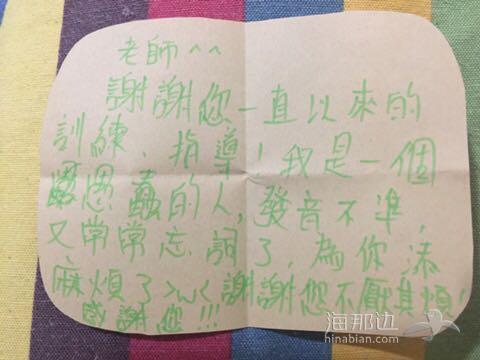 老師^^
謝謝您一直以來的
訓練、指導!我是一個
愚蠢的人,發音不準,
又常常忘詞了,為你添
麻煩了>w<謝謝您不厭其煩!
感謝您!!!
海那边
hinabian.com